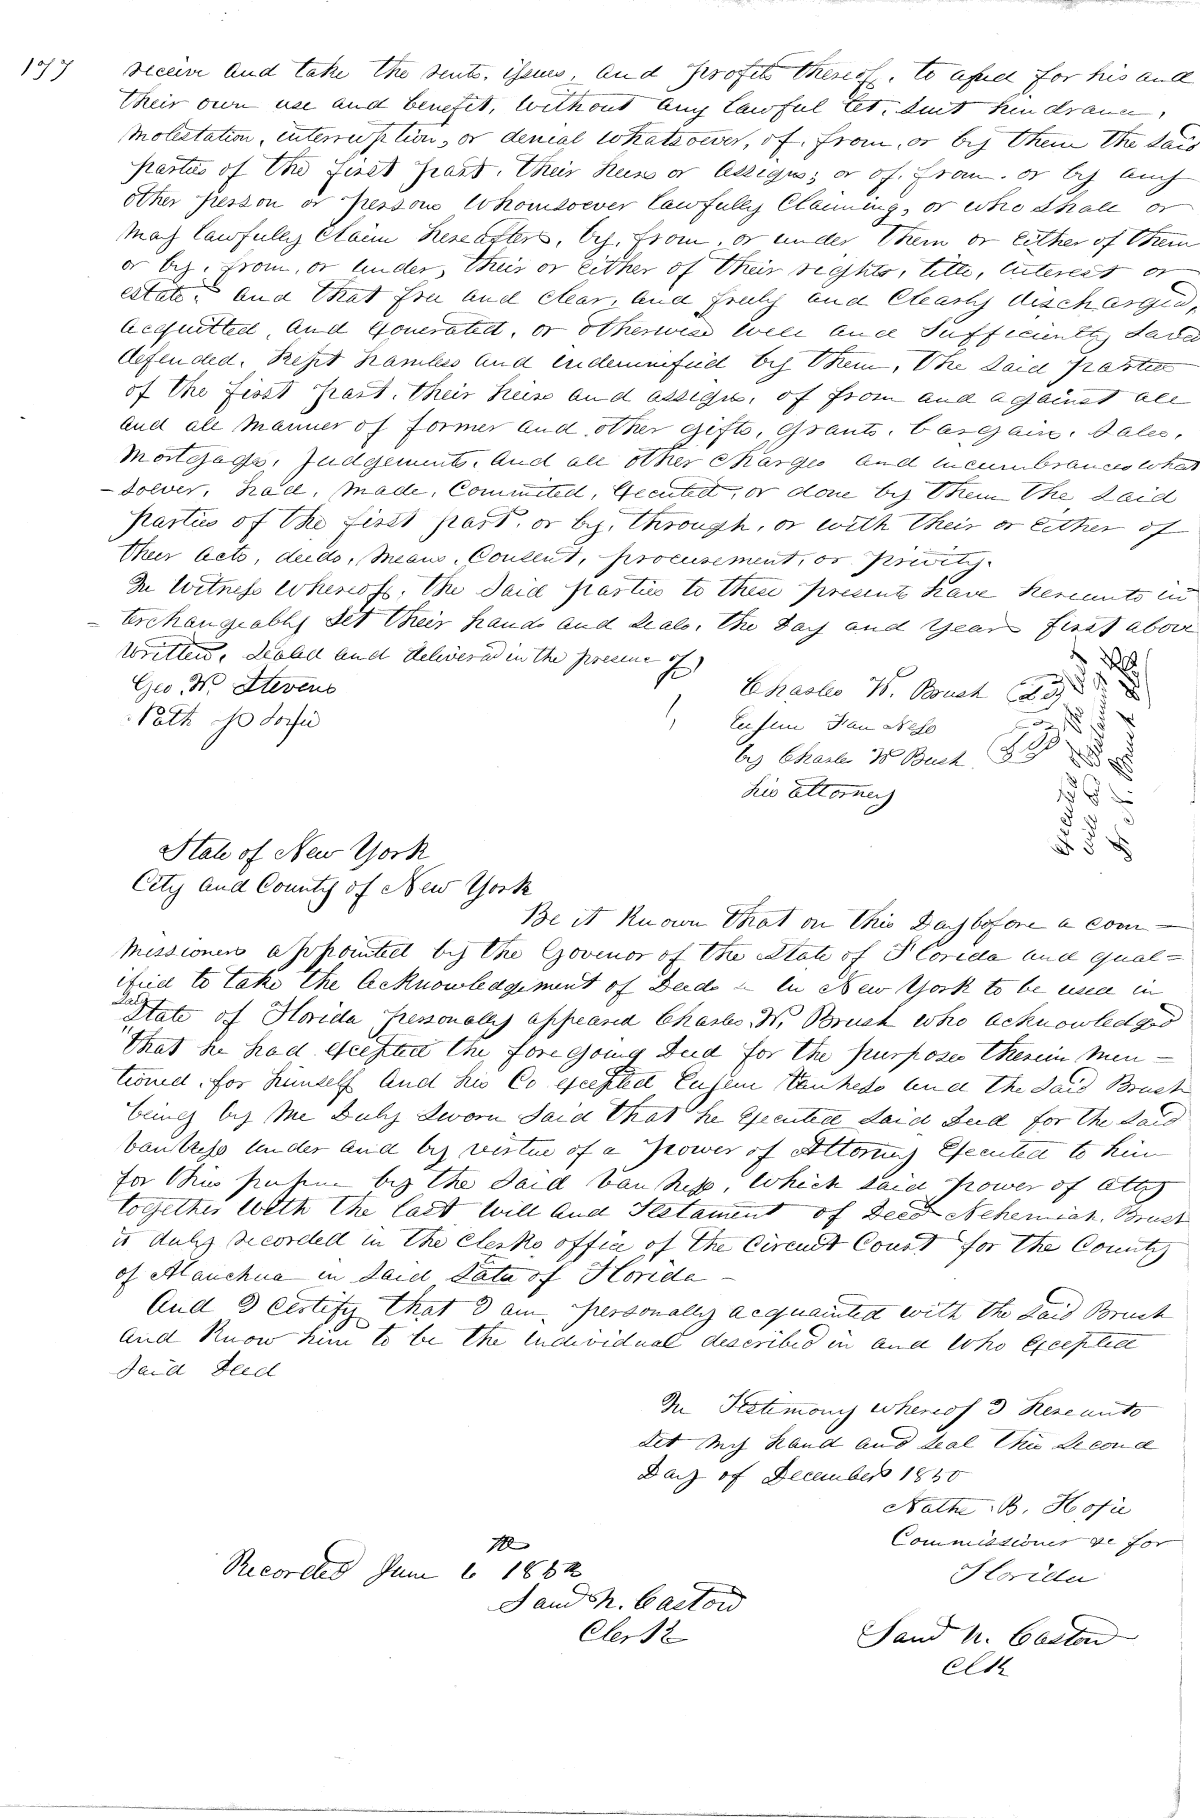 177
receive and take the rents, issues, and profits thereof, to and for his and
their own use and benefit, without any lawful let, suit hindrance,
molestation, interruption, or denial whatsoever, of, from, or by them the said
parties of the first part, their heirs or assigns; or of, from, or by any
other person or persons whomsoever lawfully claiming, or who shall or
may lawfully claim hereafter, by, from, or under them or either of them
or by, from, or under, their or either of their rights, title, interest or
estate. And that free and clear, and freely and clearly discharged,
acquitted, and exonerated, or otherwise well and sufficiently saved
defended, Kept hamless and indemnified by them, the said parties
of the first part, their heirs and assigns, of from and against all
and all manner of former and other gifts, grants, bargains, sales,
Mortgages, Judgements, and all other charges and incumbrances what
-soever, had, made, committed, executed, or done by them the said
parties of the first part, or by, through, or with their or either of
their acts, deeds, means, consent, procurement, or privity.
In Witness whereof, the said parties to these presents have hereunto in
- terchangeably set their hands and seals, the Day and year first above
written. Sealed and delivered in the presence of
Geo. W. Stevens
Charles W. Brush
Eugene Van Ness
by Charles W Brush
his attorney
Executor of the last
will and testament of
N. Brush
State of New York
City and County of New York
Be it Known that on this Day before a com-
missioner appointed by the Govenor of the State of Florida and qual=
ified to take the Acknowledgement of Deeds in New York to be used in
said
State of Florida personally appeared Charles W. Brush who acknowledged
"that he had excepted the foregoing Deed for the purposes therein men-
tioned, for himself and his Co excepted Eugene Van Ness and the said Brush
being by me Duly sworn said that he executed said Deed for the said
van Ness under and by virtue of a power of Attorney Executed to him
for this purpose by the said van Ness, which said power of atty
together with the last will and Testament of Decd Nehemiah Brush
is duly recorded in the clerks office of the Circuit Court for the County
of Alauchua in said State of Florida -
And I certify that I am personally acquainted with the said Brush
and Know him to be the individual described in and who excepted
said Deed
In Testimony whereof I hereunto
set my hand and seal this second
Day of December 1850
Nathe. B. Hoxie
Commissioner &c for
Florida
Recorded June 6 1852
Clerk
Clk